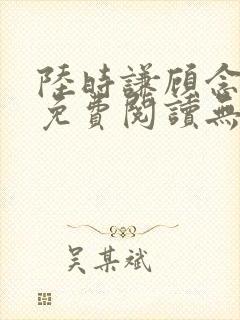 陸時謙顾念
免費閱讀無
吴某斌